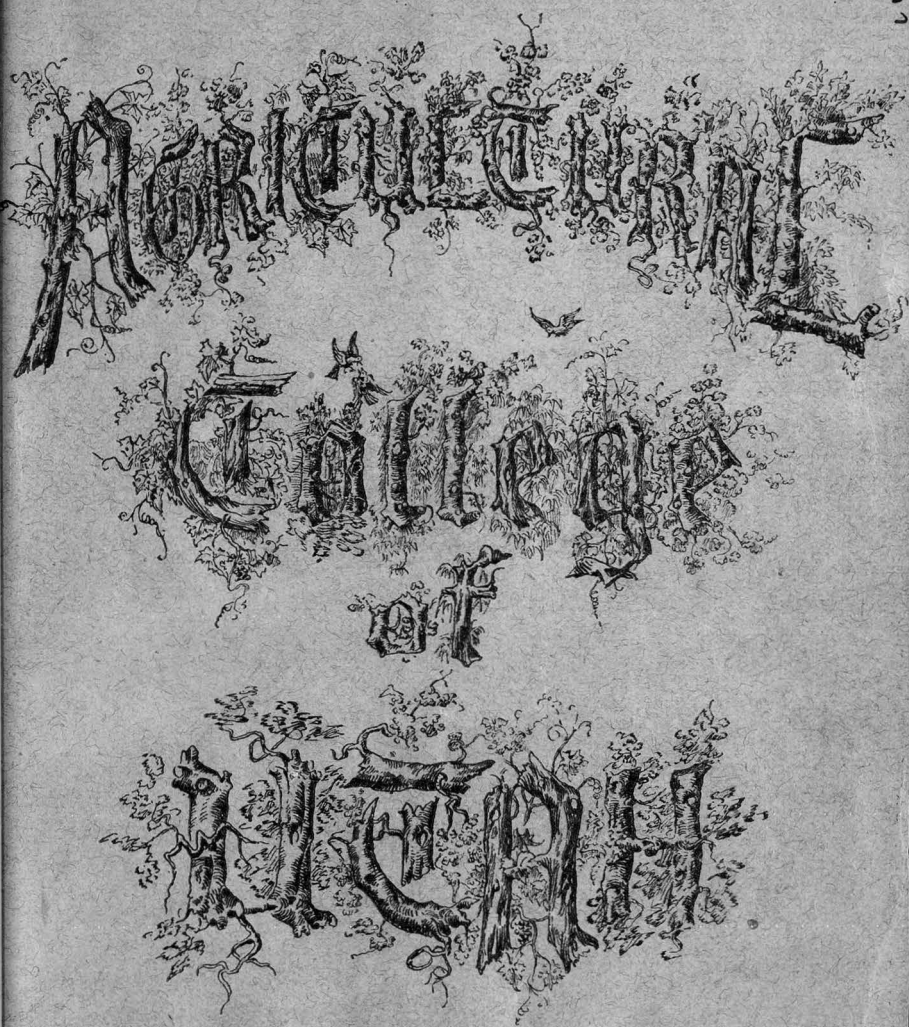 AGRICULTURAL
College
of
UTAH